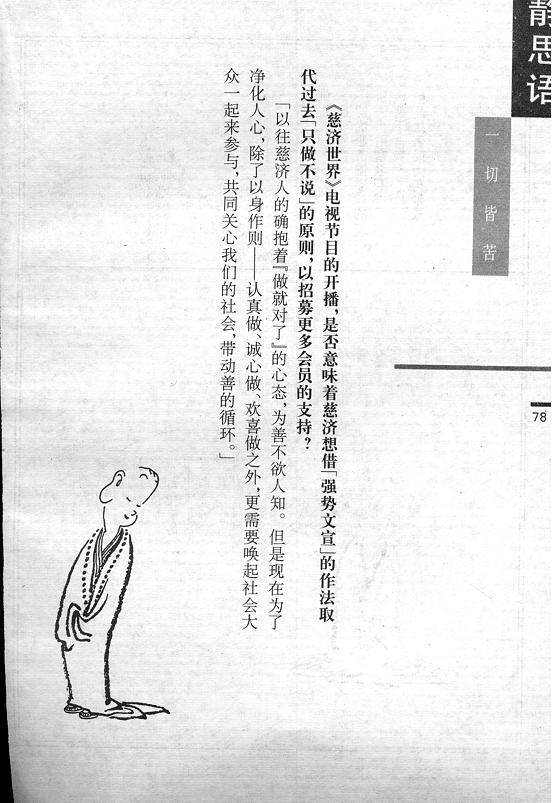 静思语
一切皆苦
78
《慈济世界》电视节目的开播，是否意味着慈济想借「强势文宣」的作法取
代过去「只做不说」的原则，以招募更多会员的支持？
「以往慈济人的确抱着『做就对了』的心态，为善不欲人知。但是现在为了
净化人心，除了以身作则——认真做、诚心做、欢喜做之外，更需要唤起社会大
众一起来参与，共同关心我们的社会，带动善的循环。」